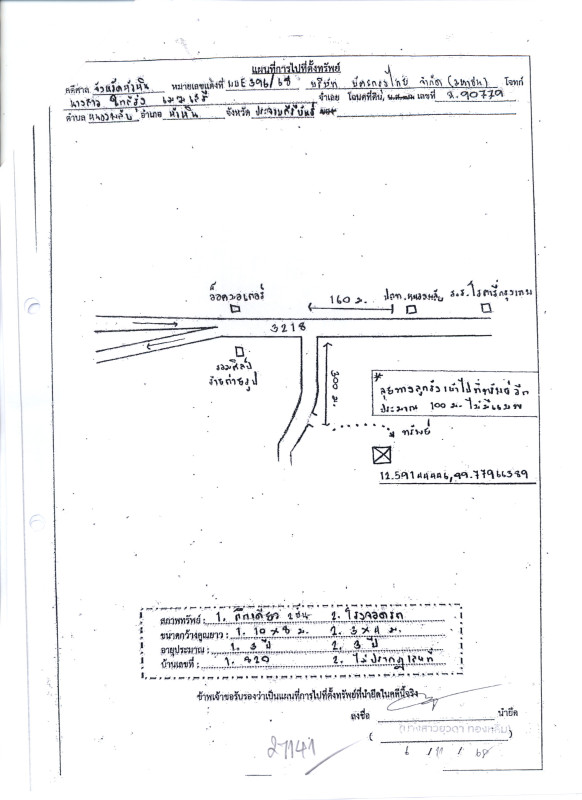 แผนที่การไปที่ตั้งทรัพย์
คดีศาล จังหวัดหัวหิน หมายเลขแดงที่ ผบE396/68 บริษัท บัตรกรุงไทย จำกัด (มหาชน) โจทก์
นางสาว จำเลย โฉนดที่ดิน, น.ส.๓ก เลขที่ 90779
ตำบล หนองพลับ อำเภอ หัวหิน จังหวัด ประจวบคีรีขันธ์
160 ม. ปตท. หนองพลับ
3218
รวมศิลป์
ร้านถ่ายรูป
300 ม.
*
ลุยทางลูกรังเข้าไปที่ทรัพย์ อีก
ประมาณ 100 ม. ไม่มี
ทรัพย์
12.59144446, 99.77966389
สภาพทรัพย์ : 1. ตึกเดี่ยว 2 ชั้น 2. โรงจอดรถ
ขนาดกว้างคูณยาว : 1. 10 x 8 ม. 2. 3 x 4 ม.
อายุประมาณ : 1. 3 ปี 2. 3 ปี
บ้านเลขที่ : 1. 820 2. ไม่ปรากฏเลขที่
ข้าพเจ้าขอรับรองว่าเป็นแผนที่การไปที่ตั้งทรัพย์ที่นำยึดในคดีนี้จริง
ลงชื่อ นำยึด
(นางสาวยุวดา ทองแค้ม)
6 / 11 / 68
27141